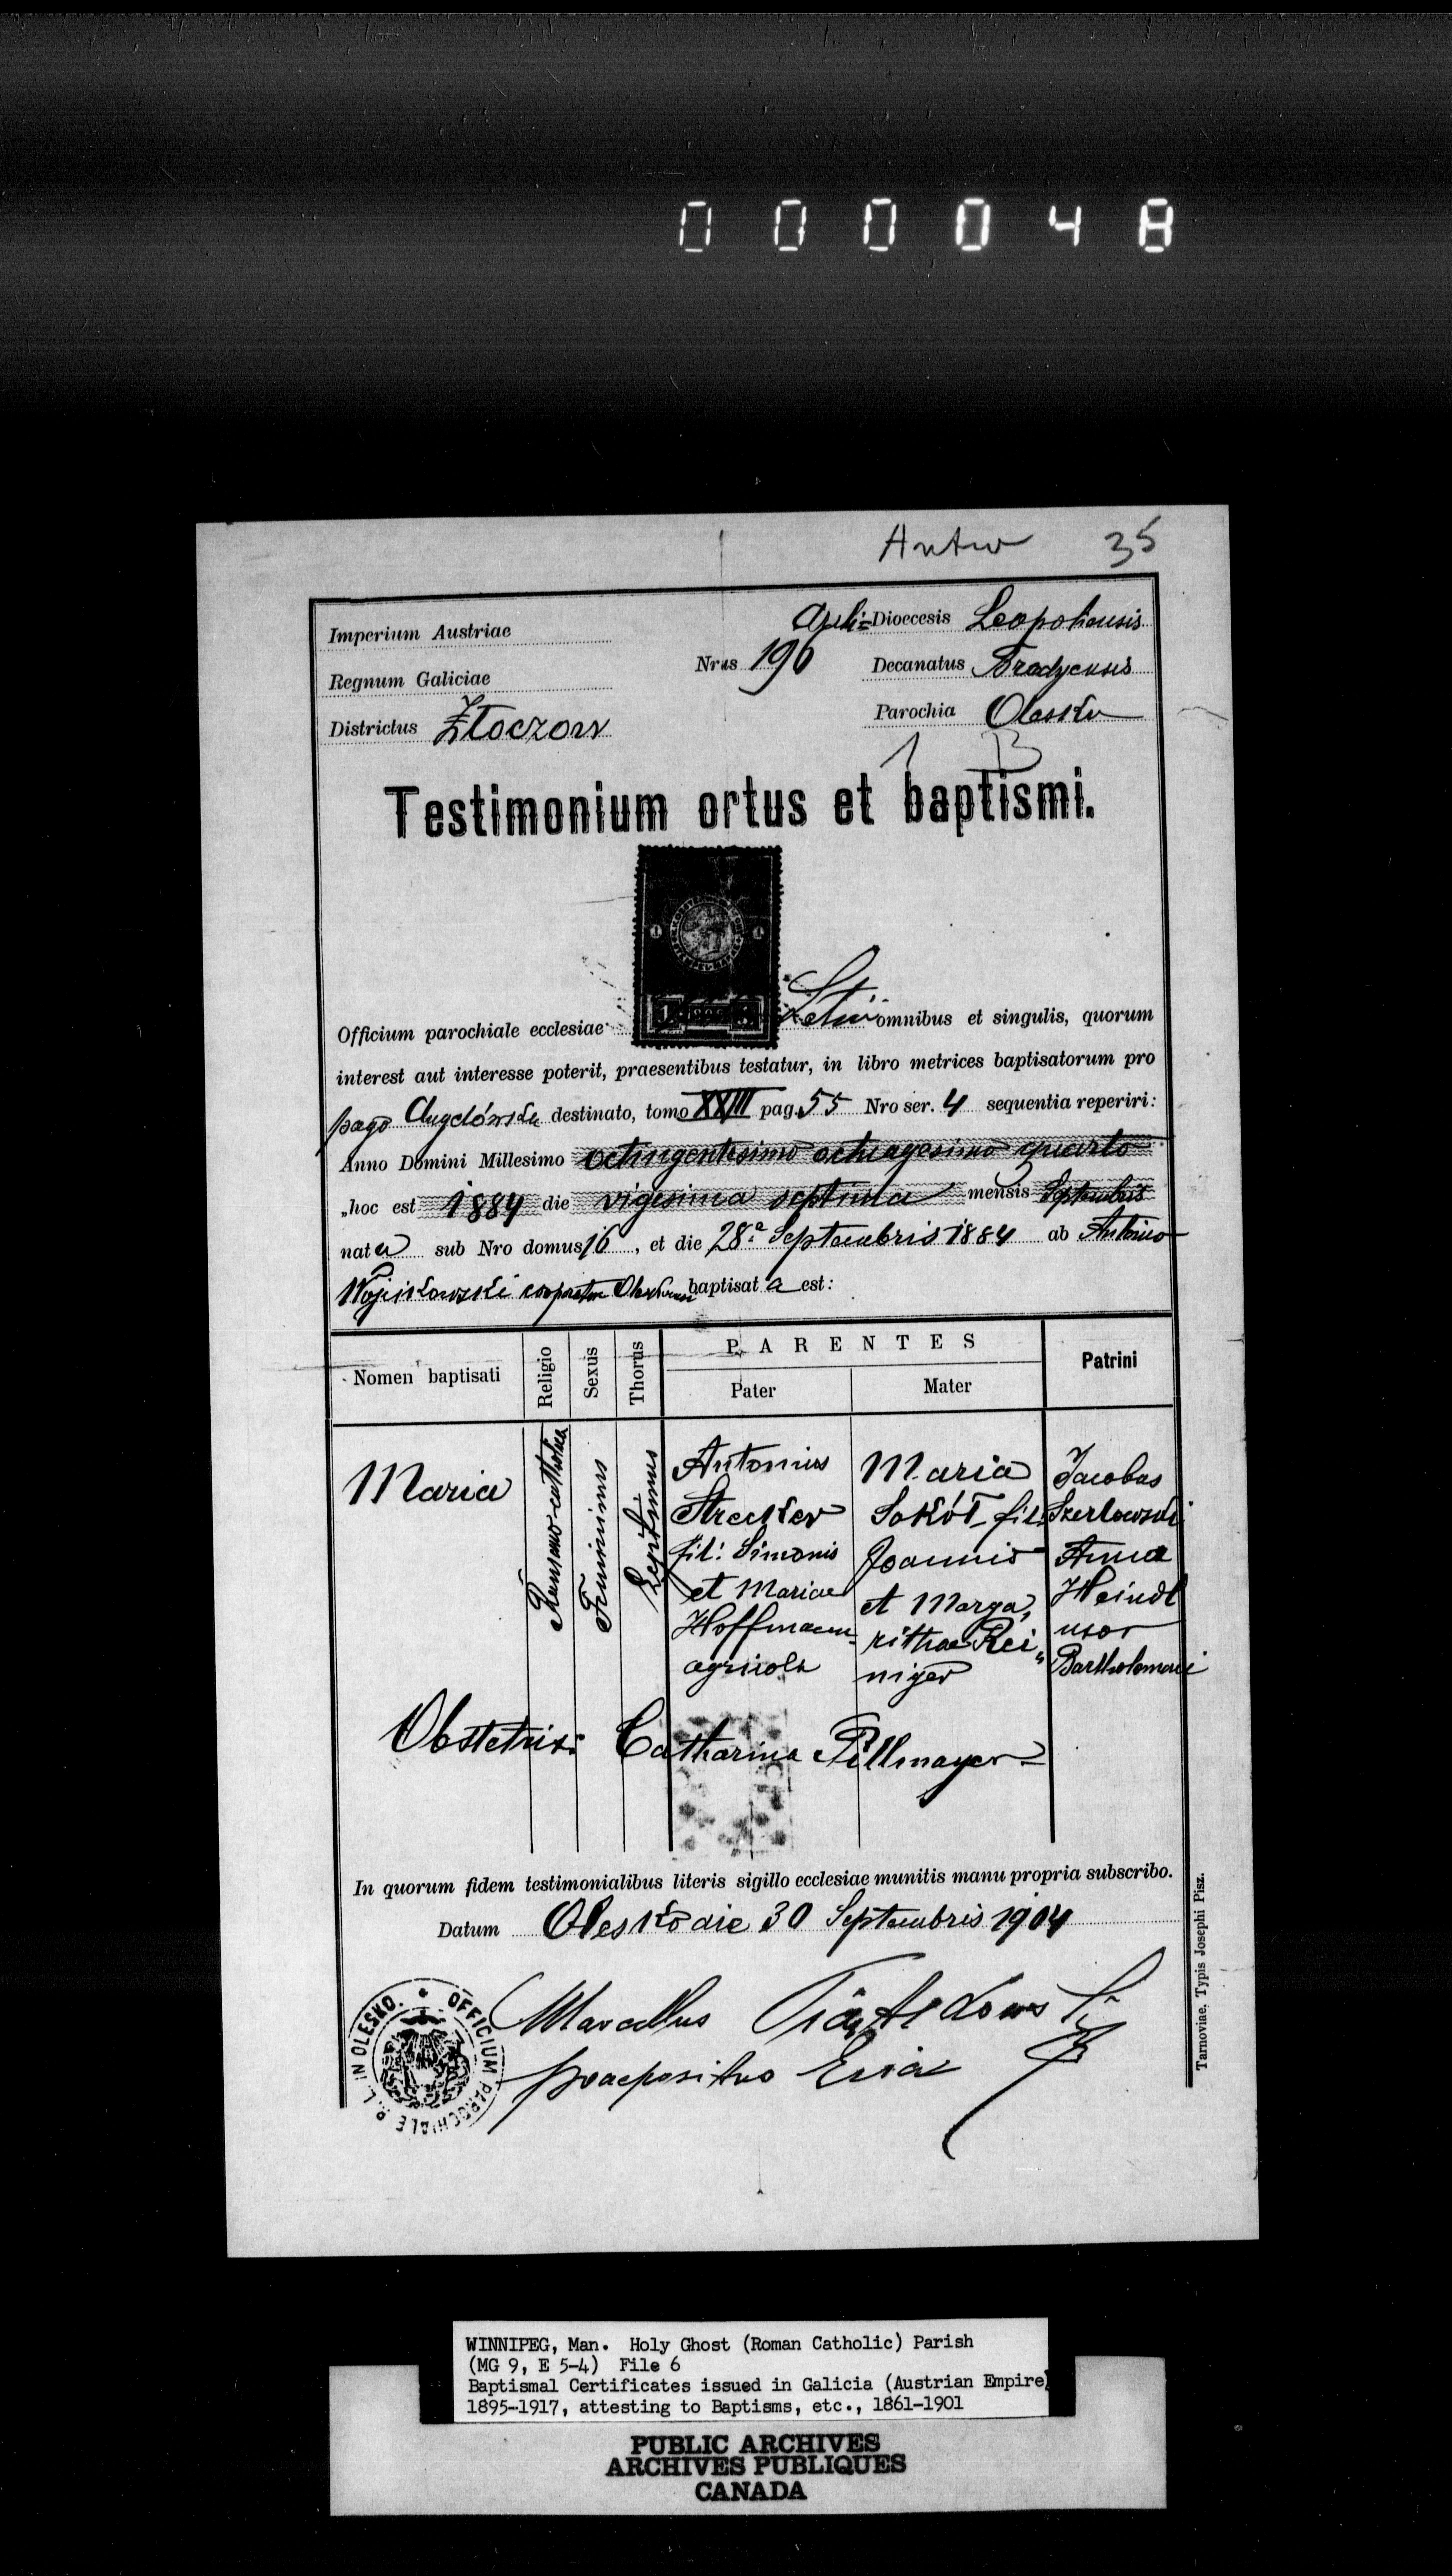 000048
35
Imperium Austriae
Nrus 190
Dioecesis Leopoliensis
Regnum Galiciae
Decanatus Brodyensis
Districtus Złoczow
Parochia Olesko
Testimonium ortus et baptismi.
1 1
Officium parochiale ecclesiae omnibus et singulis, quorum
interest aut interesse poterit, praesentibus testatur, in libro metrices baptisatorum pro
pago destinato, tomo XXIII pag. 55 Nro ser. 4 sequentia reperiri:
Anno Domini Millesimo octingentesimo octuagesimo quarto
„hoc est 1884 die vigesima septima mensis Septembris
nat a sub Nro domus 16, et die 28ª Septembris 1884 ab Antonio
Wojcikowski cooperatore baptisat a est:
Nomen baptisati
Religio
Sexus
Thorus
PARENTES
Pater
Mater
Patrini
Maria
Romano-catholica
Femininus
Legitimus
Antonius
Strecker
fil: Simonis
et Mariae
Hoffmann
agricola
Maria
Sokół fil.
Joannis
et Marga„
rithae Rei„
niger
Jacobus
Anna
Heindl
uxor
Bartholomaei
Obstetrix: Catharina Pillmayer
In quorum fidem testimonialibus literis sigillo ecclesiae munitis manu propria subscribo.
Datum Olesko die 30 Septembris 1904
Marcellus
praepositus
OFFICIUM PAROCHIALE R. L. IN OLESKO.
Tarnoviae, Typis Josephi Pisz.
WINNIPEG, Man. Holy Ghost (Roman Catholic) Parish
(MG 9, E 5-4) File 6
Baptismal Certificates issued in Galicia (Austrian Empire)
1895-1917, attesting to Baptisms, etc., 1861-1901
PUBLIC ARCHIVES
ARCHIVES PUBLIQUES
CANADA